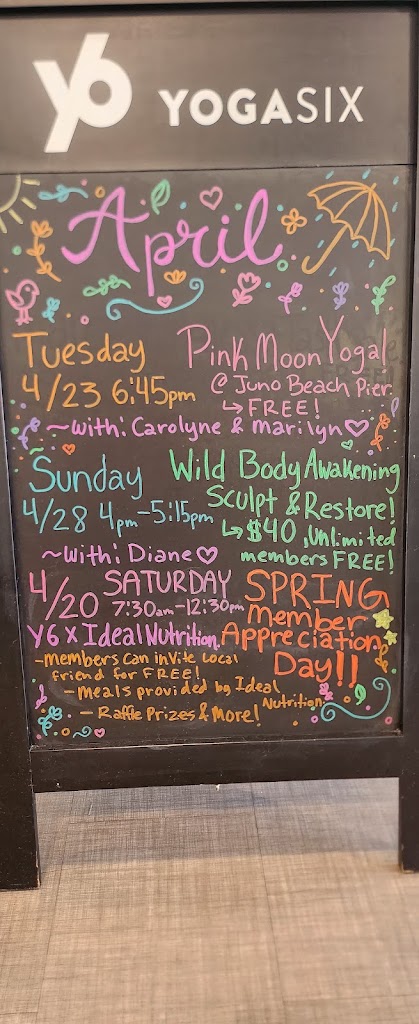 y6 YOGASIX
April
Tuesday Pink Moon Yoga!
4/23 6:45pm @ Juno Beach Pier.
↳ FREE!
~with: Carolyne & Marilyn
Sunday Wild Body Awakening
4/28 4pm-5:15pm Sculpt & Restore!
↳ $40, Unlimited
~with: Diane members FREE!
4/20 SATURDAY SPRING
7:30am-12:30pm Member
Y6 x Ideal Nutrition. Appreciation
Day!!
-members can invite local
friend for FREE!
-Meals provided by Ideal
Nutrition!
- Raffle Prizes & More!